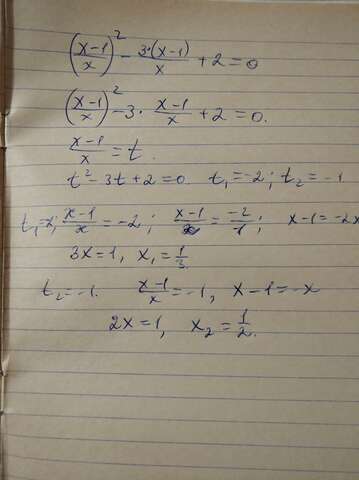 ((x-1)/x)² - 3·(x-1)/x + 2 = 0
((x-1)/x)² - 3 · (x-1)/x + 2 = 0.
(x-1)/x = t.
t² - 3t + 2 = 0. t₁ = -2; t₂ = -1
t₁ = -2; (x-1)/x = -2; (x-1)/x = -2/1; x-1 = -2x
3x = 1, x₁ = 1/3.
t₂ = -1. (x-1)/x = -1, x-1 = -x
2x = 1, x₂ = 1/2.